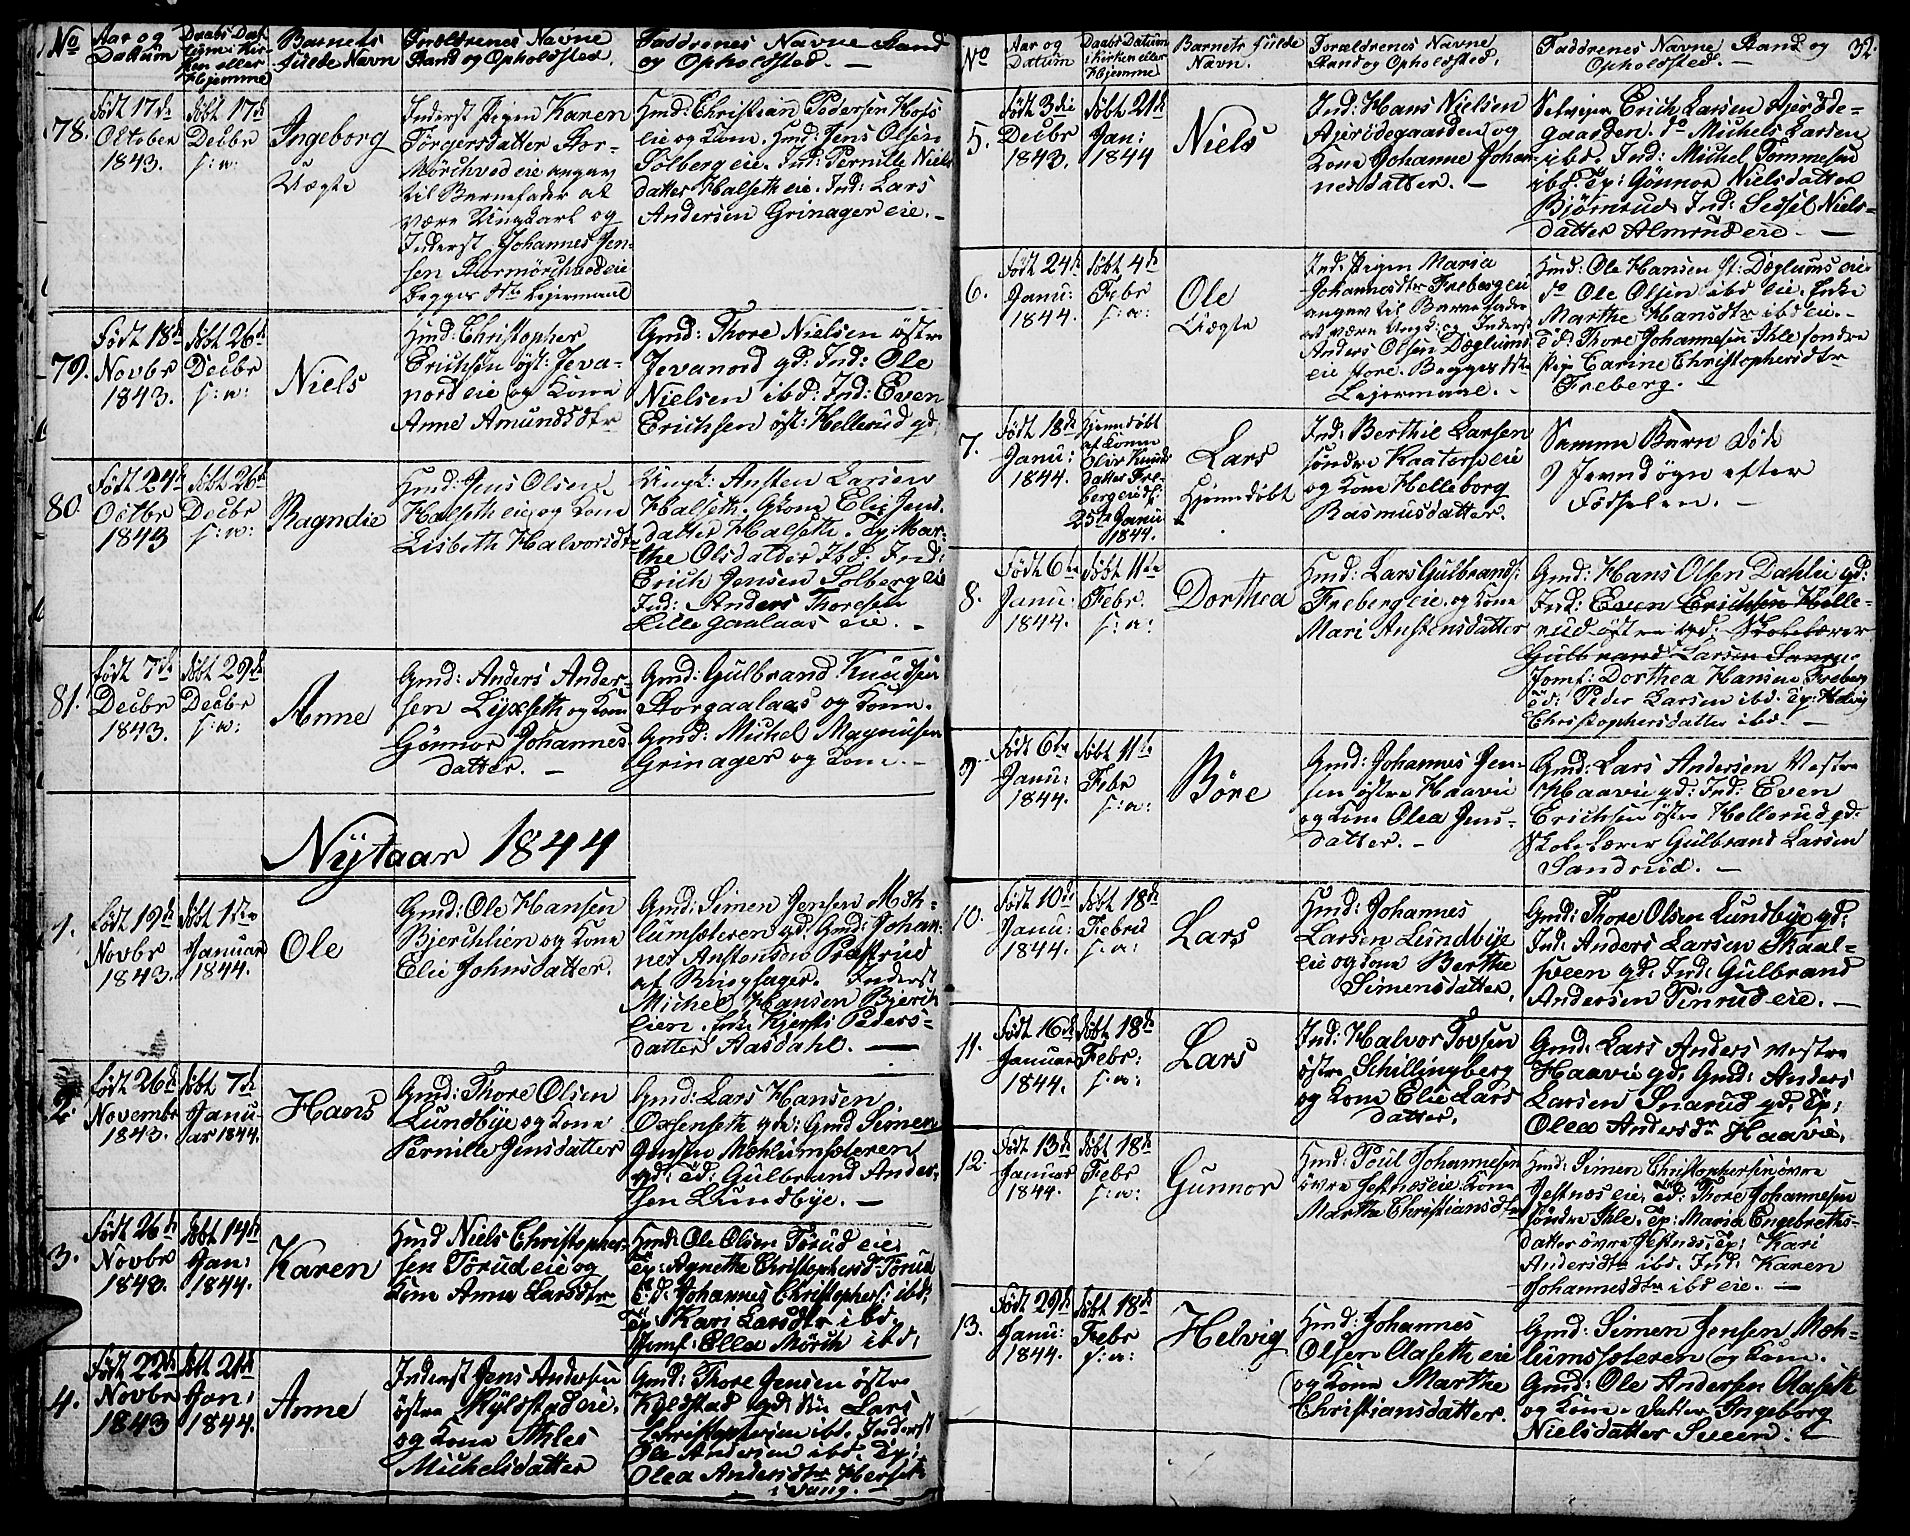 No
Aar og
Datum
Daabs Dat
tum i Kir-
ken eller
Hjemme
Barnets
fulde Navn
Forældrenes Navne
Stand og Opholdsted.
Faddrenes Navne Stand
og Opholdsted. —
78.
Født 17de
Oktober
1843.
Døbt 17de
Decbr
s: a:
Ingeborg
Uægte
Inderst Pigen Karen
Torgersdatter Stor-
Mörchved eie angav
til Barnefader at
være Ungkarl og
Inderst Johannes Jen-
sen Stormörchved eie
begges 1ste Lejermaal
Hmd: Christian Pedersen Hofs
eie og Kone. Hmd: Jens Olsen
Solberg eie. Ind: Pernille Niels
datter Halseth eie. Ind: Lars
Andersen Grinager eie. —
79.
Født 18de
Novbr
1843.
Døbt 26de
Decbr
s: a:
Niels
Hmd: Christopher
Erichsen øst: Jeva-
nord eie og Kone
Anne Amundsdtr
Gmd: Thore Nielsen østre
Jevanord gd: Ind: Ole
Nielsen ibd: Ind: Even
Erichsen øst: Hellerud gd:
80.
Født 24de
Octbr
1843
Døbt 26de
Decbr
s: a:
Ragndie
Hmd: Jens Olsen
Halseth eie og Kone
Lisbeth Halvorsdtr
Ungk: Austen Larsen
Halseth. Gkone Elie Jens
datter Halseth. Tp: Mar-
the Olsdatter Ibd: Ind:
Erich Jensen Solberg eie
Ind: Anders Thoresen
Lille gaalaas eie. —
81.
Født 7de
Decbr
1843.
Døbt 29de
Decbr
s: a:
Anne
Gmd: Anders Ander-
sen Lyxseth og Kone
Gönnor Johannes
datter. —
Gmd: Gulbrand Knudsen
Storgaalaas og Kone.
Gmd: Michel Magnusen
Grinager og Kone. —
Nytaar 1844
1.
Født 19de
Novbr
1843.
Døbt 1ste
Januar
1844.
Ole
Gmd: Ole Hansen
Bjerchlien og Kone
Elie Johnsdatter.
Gmd: Simen Jensen Mæh-
lumsæteren gd: Gmd: Johan-
nes Austensen Præstrud
af Ringsager. Inderst
Michel Hansen Bjerch
lien. Enke Kjersti Peders-
datter Aasdahl. —
2.
Født 26de
Novembr
1843.
Døbt 7de
Janu-
ar 1844.
Hans
Gmd: Thore Olsen
Lundbye og Kone
Pernille Jensdatter
Gmd: Lars Hansen
Oxenseth gde: Gmd Simen
Jensen Mæhlumsæteren
gd: Ed: Gulbrand Ander-
sen Lundbye. —
3.
Født 26de
Novbr
1843.
Døbt 14de
Jan:
1844.
Karen
Hmd Niels Christopher-
sen Torud eie og
Kone Anne Larsdtr
Hmd: Ole Olsen Torud eie
Tp: Agnethe Christophersd: Torud
E: d: Johannes Christophers: ibd:
Tp: Kari Larsdtr ibd.
Jomf: Ella Mörch ibd:
4.
Født 22de
Novbr
1843
Døbt 21de
Jan:
1844.
Anne
Inderst Jens Andersen
østre Kyldstad eie.
og Kone Ahles
Michelsdatter
Gmd: Thore Jensen østre
Kyldstad gd: Lars
Christophersen ibd. Inderst
Ole Andersen ibd. Tp:
Olea Andersdtr Herseth
i Vang. —
No
Aar og
Datum
Daabs Datum
i Kirken eller
Hjemme
Barnets fulde
Navn.
Forældrenes Navne
Stand og Opholdsted.
Faddrenes Navne Stand og
Opholdsted. —
32.
5.
Født 3die
Decbr
1843.
Døbt 21de
Jan:
1844
Niels
Ind: Hans Nielsen
Ajerødegaarden og
Kone Johanne Johan-
nesdatter. —
Selveier Erich Larsen Ajerøde-
gaarden. do Michel Larsen
ibd. Ind: Michel Tommesen
ibd. Tp: Gönnor Nielsdatter
Bjørnrud. Ind: Sidsel Niels-
datter Almrud eie. —
6.
Født 24de
Janu:
1844.
Døbt 4de
Febr
s: a:
Ole
Uægte
Ind: Pigen Maria
Johannesdtr Freberg eie
angav til Barnefader
at være Ungk: og Inderst
Anders Olsen Dæglums
eie store. Begges 1ste
Lejermaal. —
Hmd: Ole Hansen st: Dæglums eie
do Ole Olsen ibd eie. Enke
Marthe Hansdtr ibd eie. —
E d: Thore Johannesen Ihle søndre
Pige Carine Christophersdtr
Freberg. —
7.
Født 18de
Janu:
1844.
Hjemdøbt
af Konen
Olia Knuds
datter Fre-
berg eie d:
25te Janu
1844.
Lars
Hjemdøbt
Ind: Berthel Larsen
søndre Kaaterse eie
og Kone Helleborg
Rasmusdatter.
Samme Barn døde
9 Jevndøgn efter
Fødselen. —
8.
Født 6te
Janu:
1844.
Døbt 11te
Febr.
s: a:
Dorthea
Hmd: Lars Gulbrands:
Freberg eie. og Kone
Mari Austensdatter
Gmd: Hans Olsen Dæhlie gd:
Ind: Even Erichsen Helle-
rud østre gd: Skolelærer
Gulbrand Larsen Sanrue
Jomf: Dorthea Hansen Freberg
Ed: Peder Larsen ibd. Tp: Helvig
Christophersdatter ibd. —
9
Født 6te
Janu:
1844.
Døbt 11te
Febr
s: a:
Böre
Gmd: Johannes Jen-
sen østre Haavie
og Kone Olea Jens-
datter. —
Gmd: Lars Andersen Vestre
Haavie gd: Ind: Even
Erichsen østre Hellerud gd.
Skolelærer Gulbrand Larsen
Sandrud. —
10.
Født 10de
Janu:
1844.
Døbt 18de
Febrd
s: a:
Lars
Hmd: Johannes
Larsen Lundbye
eie og Kone Berthe
Simensdatter.
Gmd: Thore Olsen Lundbye gd:
Ind: Anders Larsen Skaal-
sveen gd: Ind: Gulbrand
Andersen Tinrud eie. —
11.
Født 16de
Januar
1844.
Døbt 18de
Febr:
s: a:
Lars
Ind: Halvor Tovsen
østre Schillingberg
og Kone Elie Lars
datter.
Gmd: Lars Anders vestre
Haavie gd: Gmd: Anders
Larsen Snarud gd: Tp:
Olea Andersdr Haavie.
12.
Født 13de
Januar
1844.
Døbt 18de
Febr
s: a:
Gunnor
Hmd: Poul Johannesen
övre Jestnæs eie. Kone
Marthe Christiansdtr
Hmd: Simen Christophersen övre
Jestnæs eie. Ed: Thore Johannesen
söndre Ihle. Tp: Maria Engebreths-
datter övre Jestnæs. Tp: Kari
Andersdtr ibd. Ind: Karen
Johannesdtr ibd eie. —
13.
Født 29de
Janu:
1844.
Døbt 18de
Febr
s: a:
Helvig
Hmd: Johannes
Olsen Aaseth eie
og Kone Marthe
Christiansdatter.
Gmd: Simen Jensen Mæh-
lumsæteren og Kone.
Gmd: Ole Andersen Aaseth
og Kone. Datter Ingeborg
Nielsdatter Sveen: —